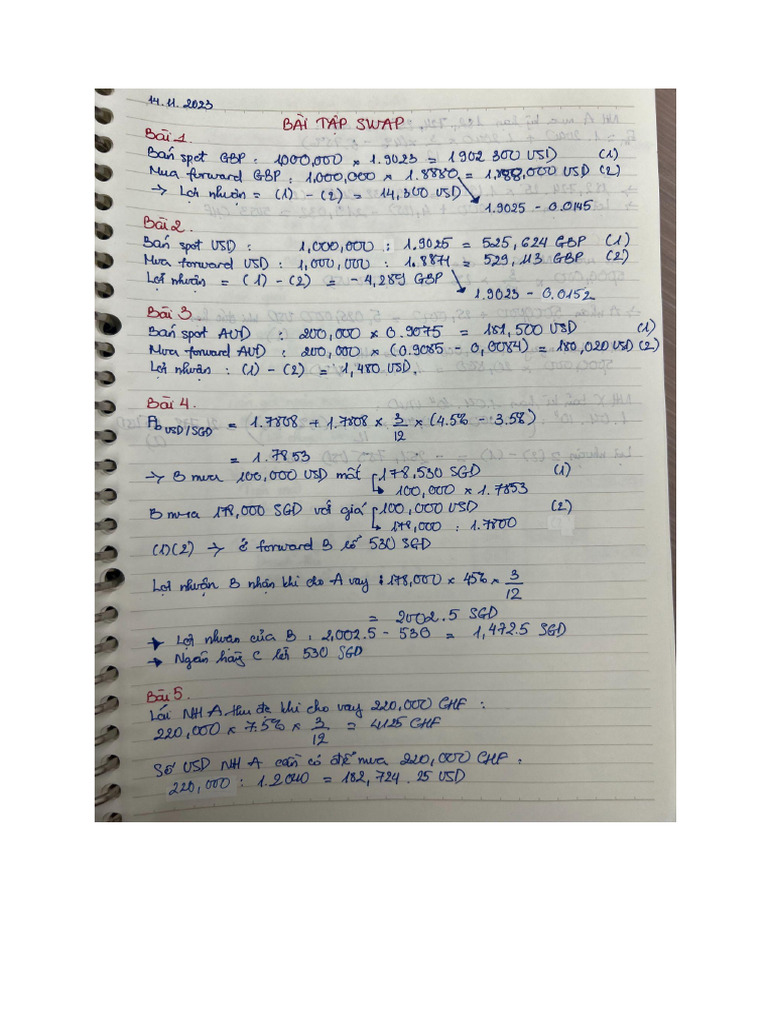 14.11.2023
BÀI TẬP SWAP
Bài 1.
Bán spot GBP : 1000,000 × 1.9023 = 1902 300 USD (1)
Mua forward GBP : 1,000,000 × 1.8880 = 1,888,000 USD (2)
→ Lợi nhuận = (1) - (2) = 14,300 USD
1.9025 - 0.0145
Bài 2.
Bán spot USD : 1,000,000 : 1.9025 = 525,624 GBP (1)
Mua forward USD : 1,000,000 : 1.8871 = 529,113 GBP (2)
Lợi nhuận = (1) - (2) = - 4,289 GBP
1.9023 - 0.0152
Bài 3
Bán spot AUD : 200,000 × 0.9075 = 181,500 USD (1)
Mua forward AUD : 200,000 × (0.9085 - 0,0084) = 180,020 USD (2)
Lợi nhuận : (1) - (2) = 1,480 USD.
Bài 4.
USD/SGD = 1.7808 + 1.7808 × 3/12 × (4.5% - 3.5%)
= 1.7853
→ B mua 100,000 USD mất 178,530 SGD (1)
100,000 × 1.7853
B mua 178,000 SGD với giá 100,000 USD (2)
178,000 : 1.7800
(1)(2) → ở forward B lỗ 530 SGD
Lợi nhuận B nhận khi cho A vay : 178,000 × 45% × 3/12
= 2002.5 SGD
→ Lợi nhuân của B : 2,002.5 - 530 = 1,472.5 SGD
→ Ngân hàg C lời 530 SGD
Bài 5.
Lãi NH A thu đc khi cho vay 220,000 CHF :
220,000 × 7.5% × 3/12 = 4125 CHF
Số USD NH A cần có để mua 220,000 CHF :
220,000 : 1.2040 = 182,724.25 USD